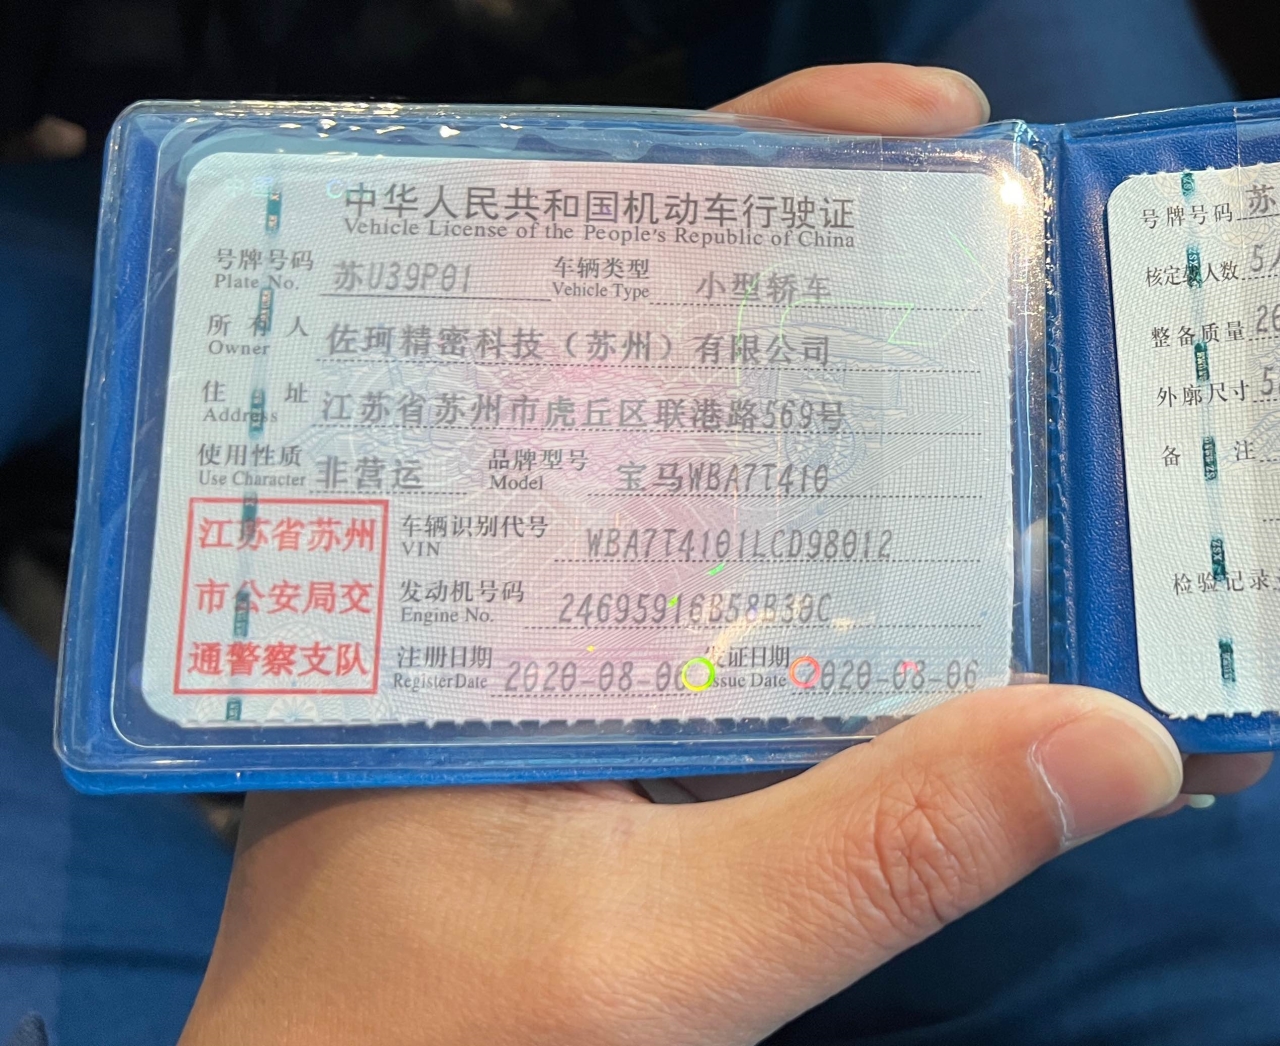 中华人民共和国机动车行驶证
Vehicle License of the People's Republic of China
号牌号码 苏U39P01 车辆类型 小型轿车
Plate No. Vehicle Type
所有人 佐珂精密科技（苏州）有限公司
Owner
住址 江苏省苏州市虎丘区联港路569号
Address
使用性质 非营运 品牌型号 宝马WBA7T410
Use Character Model
江苏省苏州
市公安局交
通警察支队
车辆识别代号 WBA7T4101LCD98012
VIN
发动机号码 24695916B58B30C
Engine No.
注册日期 2020-08-06 发证日期 2020-08-06
Register Date Issue Date
号牌号码 苏
核定载人数 5
整备质量
外廓尺寸 5
备注
检验记录